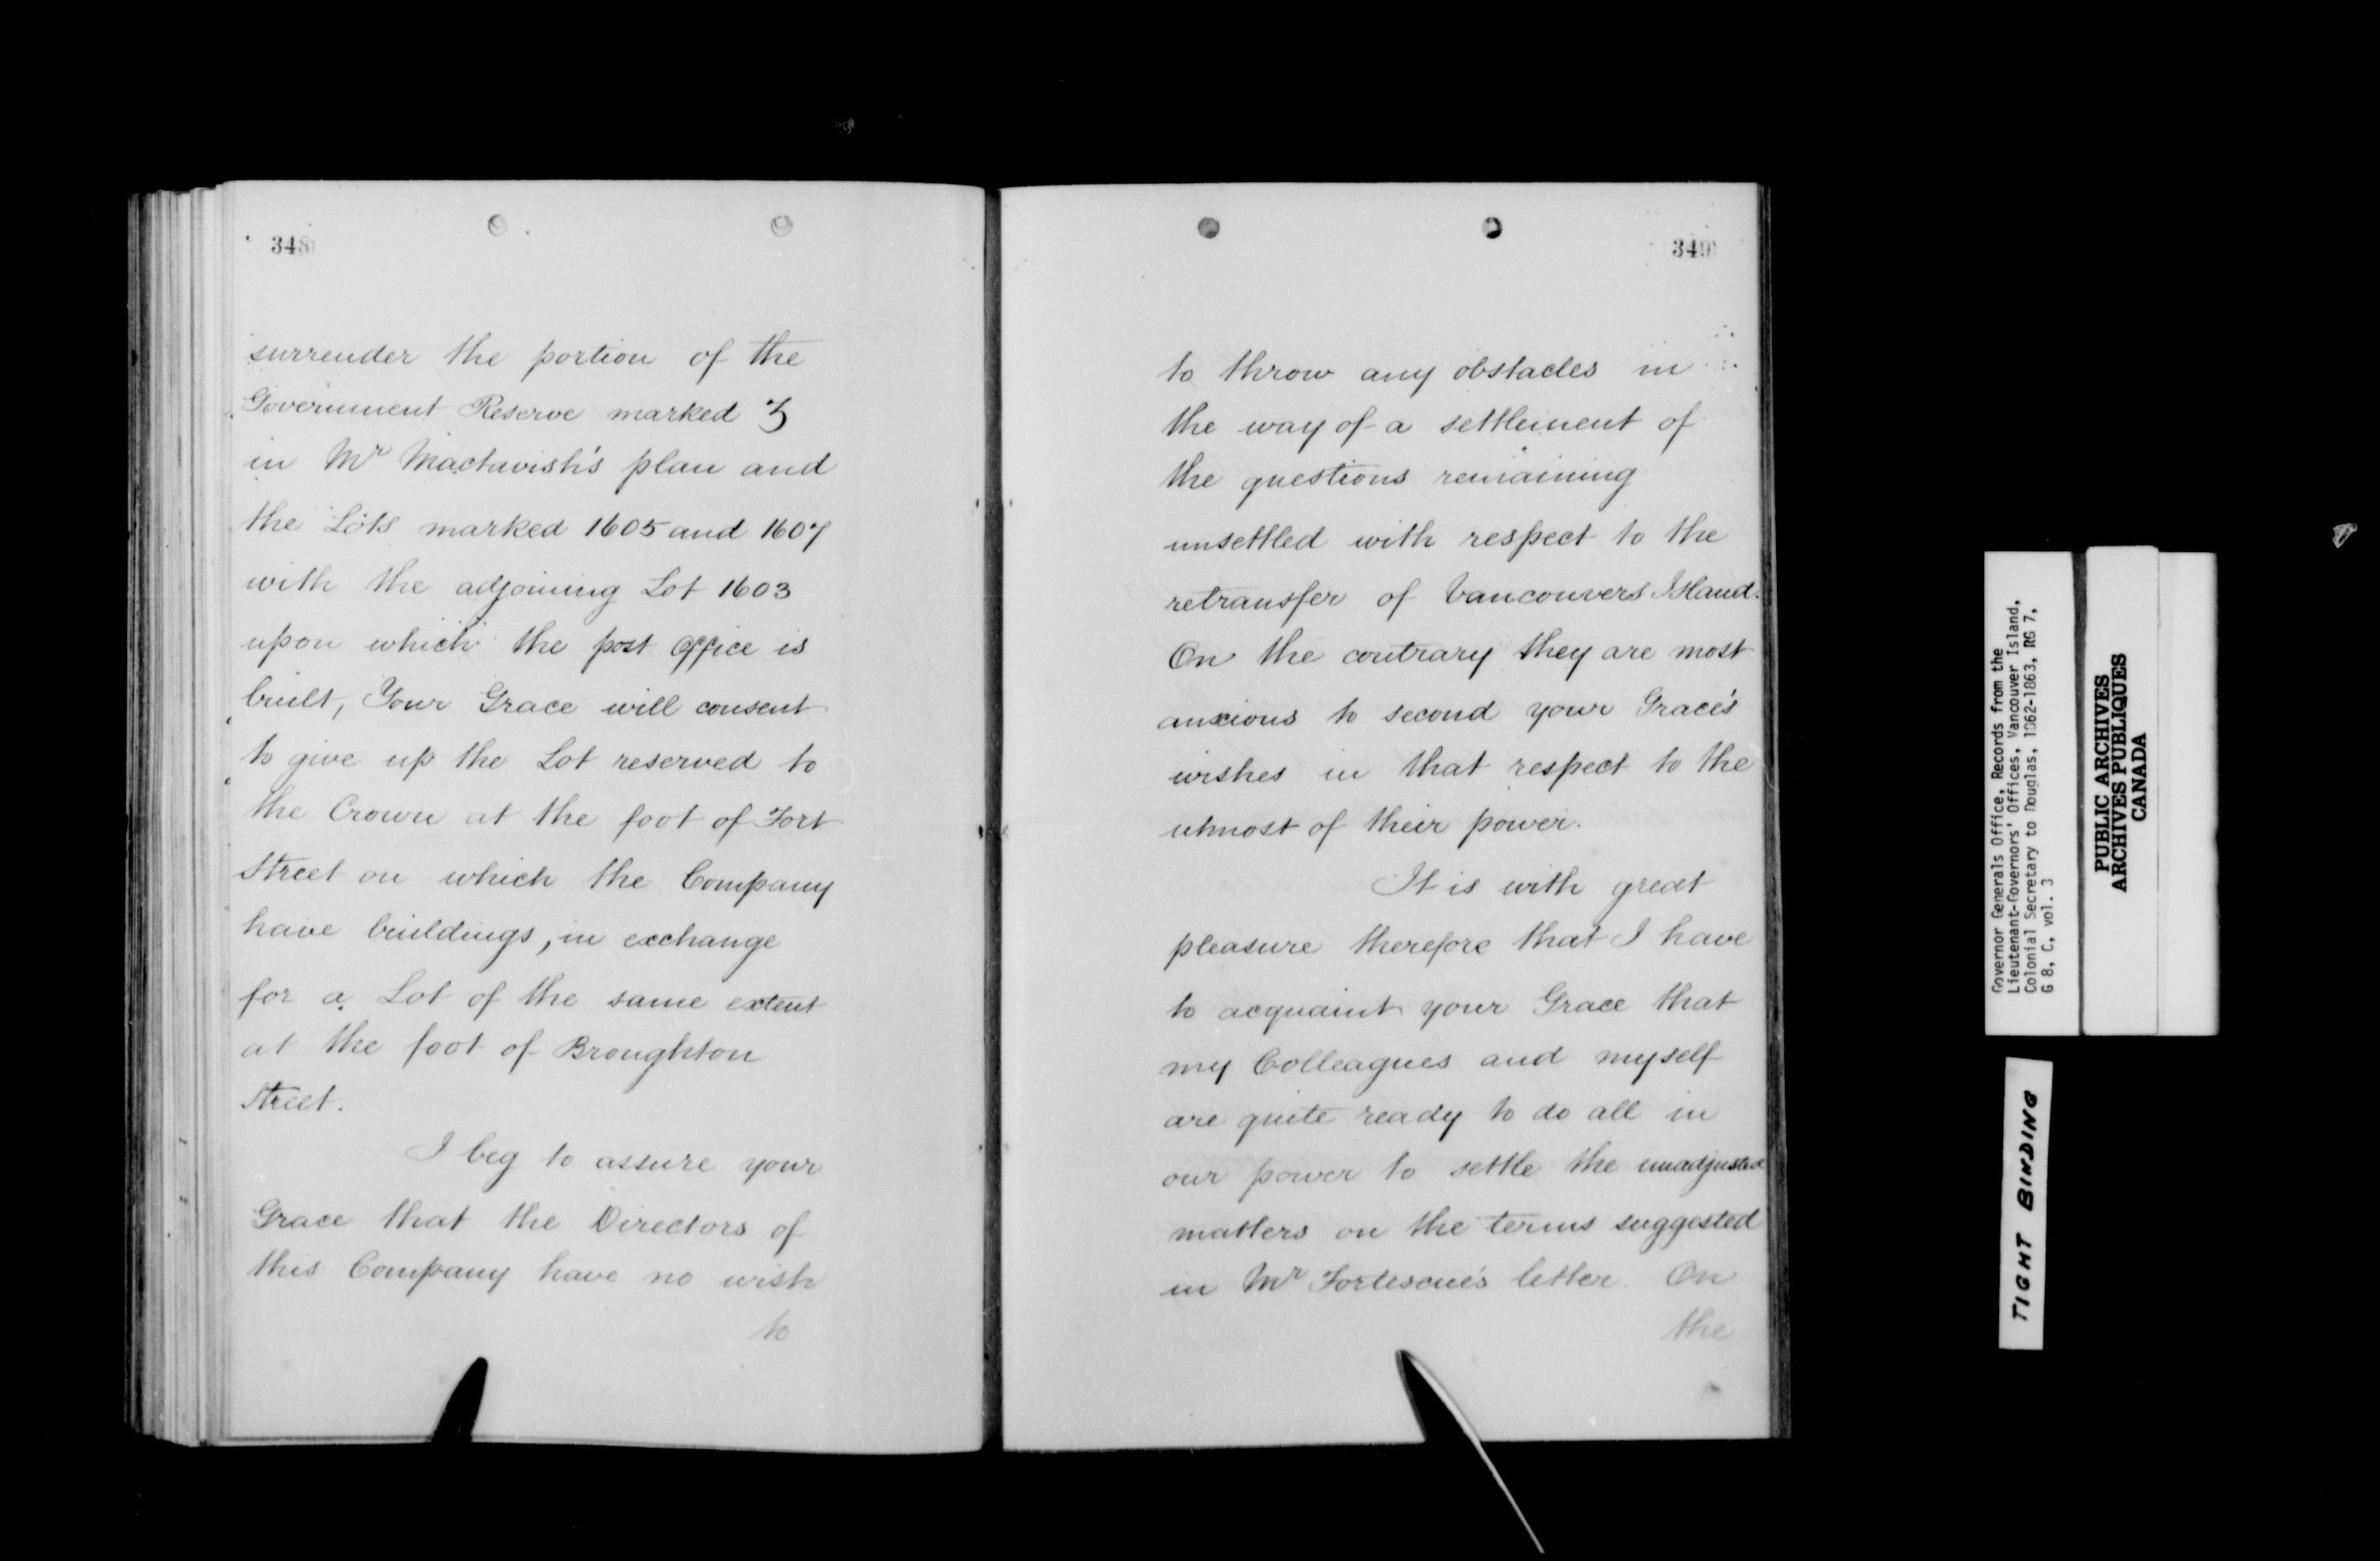 348
surrender the portion of the
Government Reserve marked 3
in Mr Mactavish's plan and
the Lots marked 1605 and 1607
with the adjoining Lot 1603
upon which the post office is
built, Your Grace will consent
to give up the Lot reserved to
the Crown at the foot of Fort
Street on which the Company
have buildings, in exchange
for a Lot of the same extent
at the foot of Broughton
Street.
I beg to assure your
Grace that the Directors of
this Company have no wish
to
349
to throw any obstacles in
the way of a settlement of
the questions remaining
unsettled with respect to the
retransfer of Vancouvers Island.
On the contrary they are most
anxious to second your Grace's
wishes in that respect to the
utmost of their power.
It is with great
pleasure therefore that I have
to acquaint your Grace that
my Colleagues and myself
are quite ready to do all in
our power to settle the unadjusted
matters on the terms suggested
in Mr Fortescue's letter. On
the
Governor Generals Office, Records from the
Lieutenant-Governors' Offices, Vancouver Island,
Colonial Secretary to Douglas, 1862-1863, RG 7,
G 8, C, vol. 3
PUBLIC ARCHIVES
ARCHIVES PUBLIQUES
CANADA
TIGHT BINDING